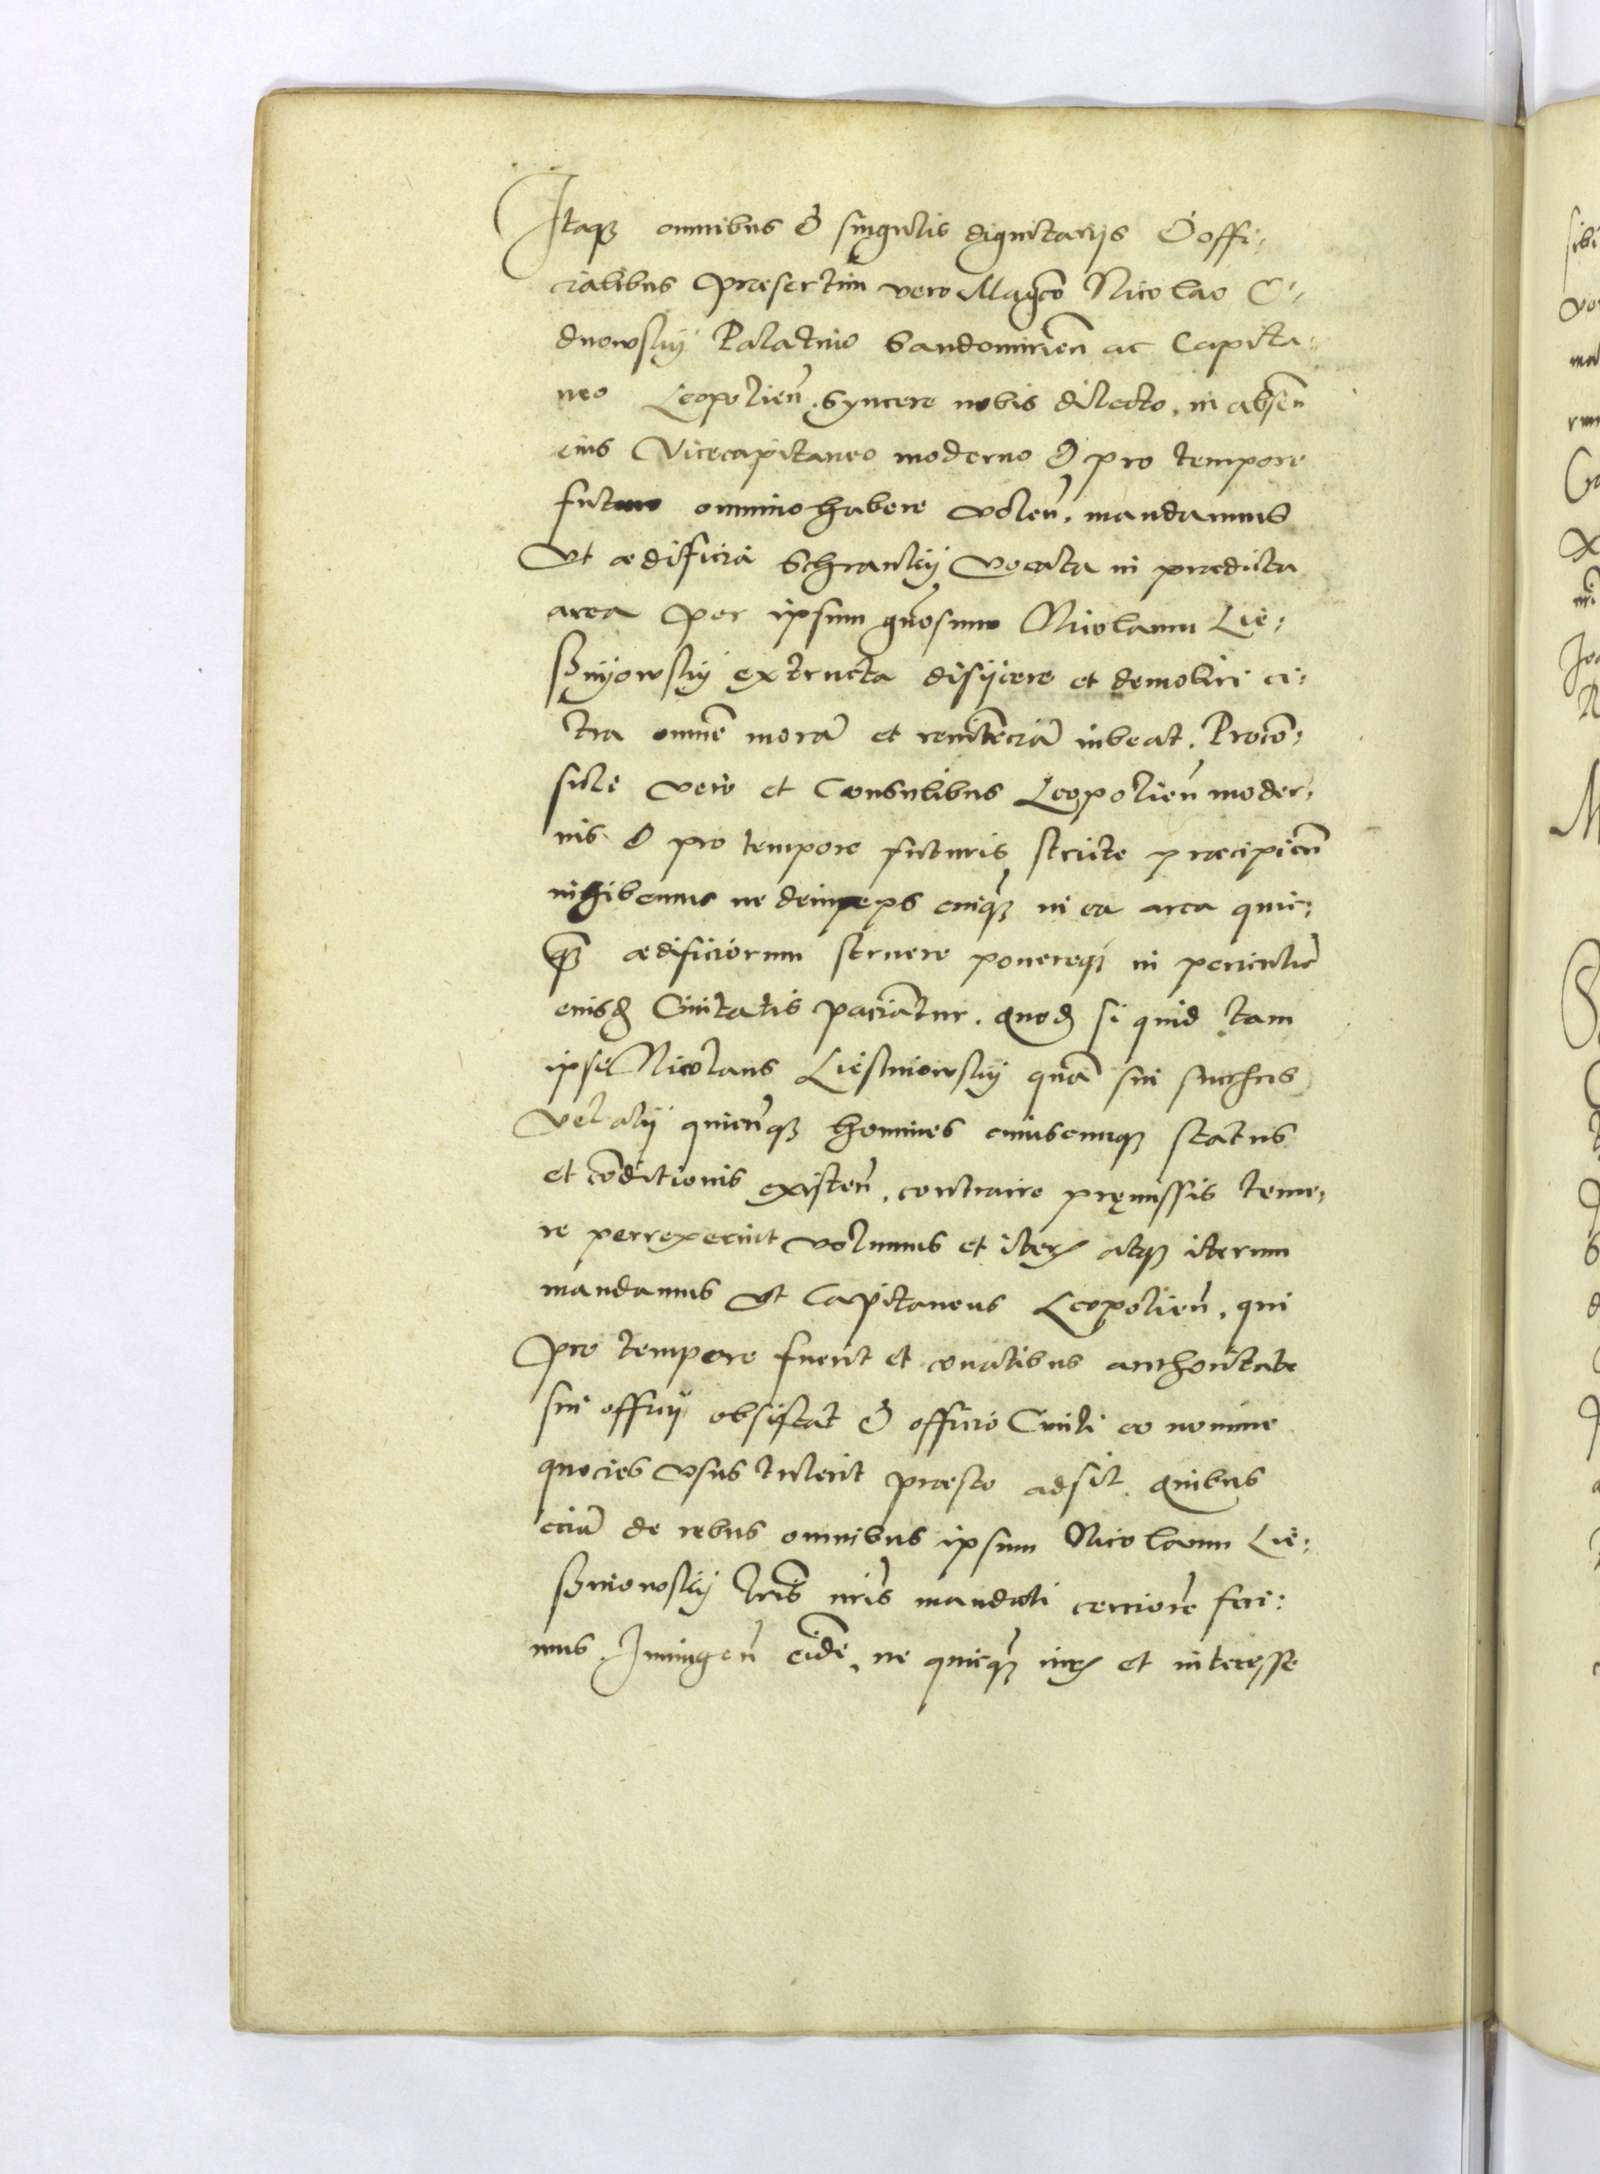 Itaq3 omnibus & singulis dignitarijs & offi:
cialibus praesertim vero Magco Nicolao O:
dnowskij Palatino Sandomirien ac Capita:
neo Leopolien, Syncere nobis dilecto, in absen
eius Vicecapitaneo moderno & pro tempore
futuro omnino habere volen, mandamus
Ut aedificia Schranky vocata in praedicta
area per ipsum gnosum Nicolaum Lie:
sznijowskij extructa disijcere et demoliri ci:
tra omnē morā et renitēciā iubeat. Procō:
suli vero et Consulibus Leopolien moder:
nis & pro tempore futuris stricte praecipien
inhibemus ne deinceps cuiq3 in ea area quic:
q3 aedificiorum struere ponereq3 in periculū
eiusd Civitatis paciātur. Quod si quid tam
ipse Nicolaus Liesniowskij quā sui
vel alij quicunq3 homines cuiuscunq3 status
et cōditionis existen, contraire pręmissis teme:
re perrexerint volumus et iter atq3 iterum
mandamus Ut Capitaneus Leopolien, qui
pro tempore fuerit et conatibus authoritate
sui officij obsistat & officio Civili eo nomine
quocies usus tulerit praesto adsit. Quibus
eciā de rebus omnibus ipsum Nicolaum Lie:
szniowskij lris nris mandati cerciorē feci:
mus. Iniungen eidē, ne quicq3 iur et interesse